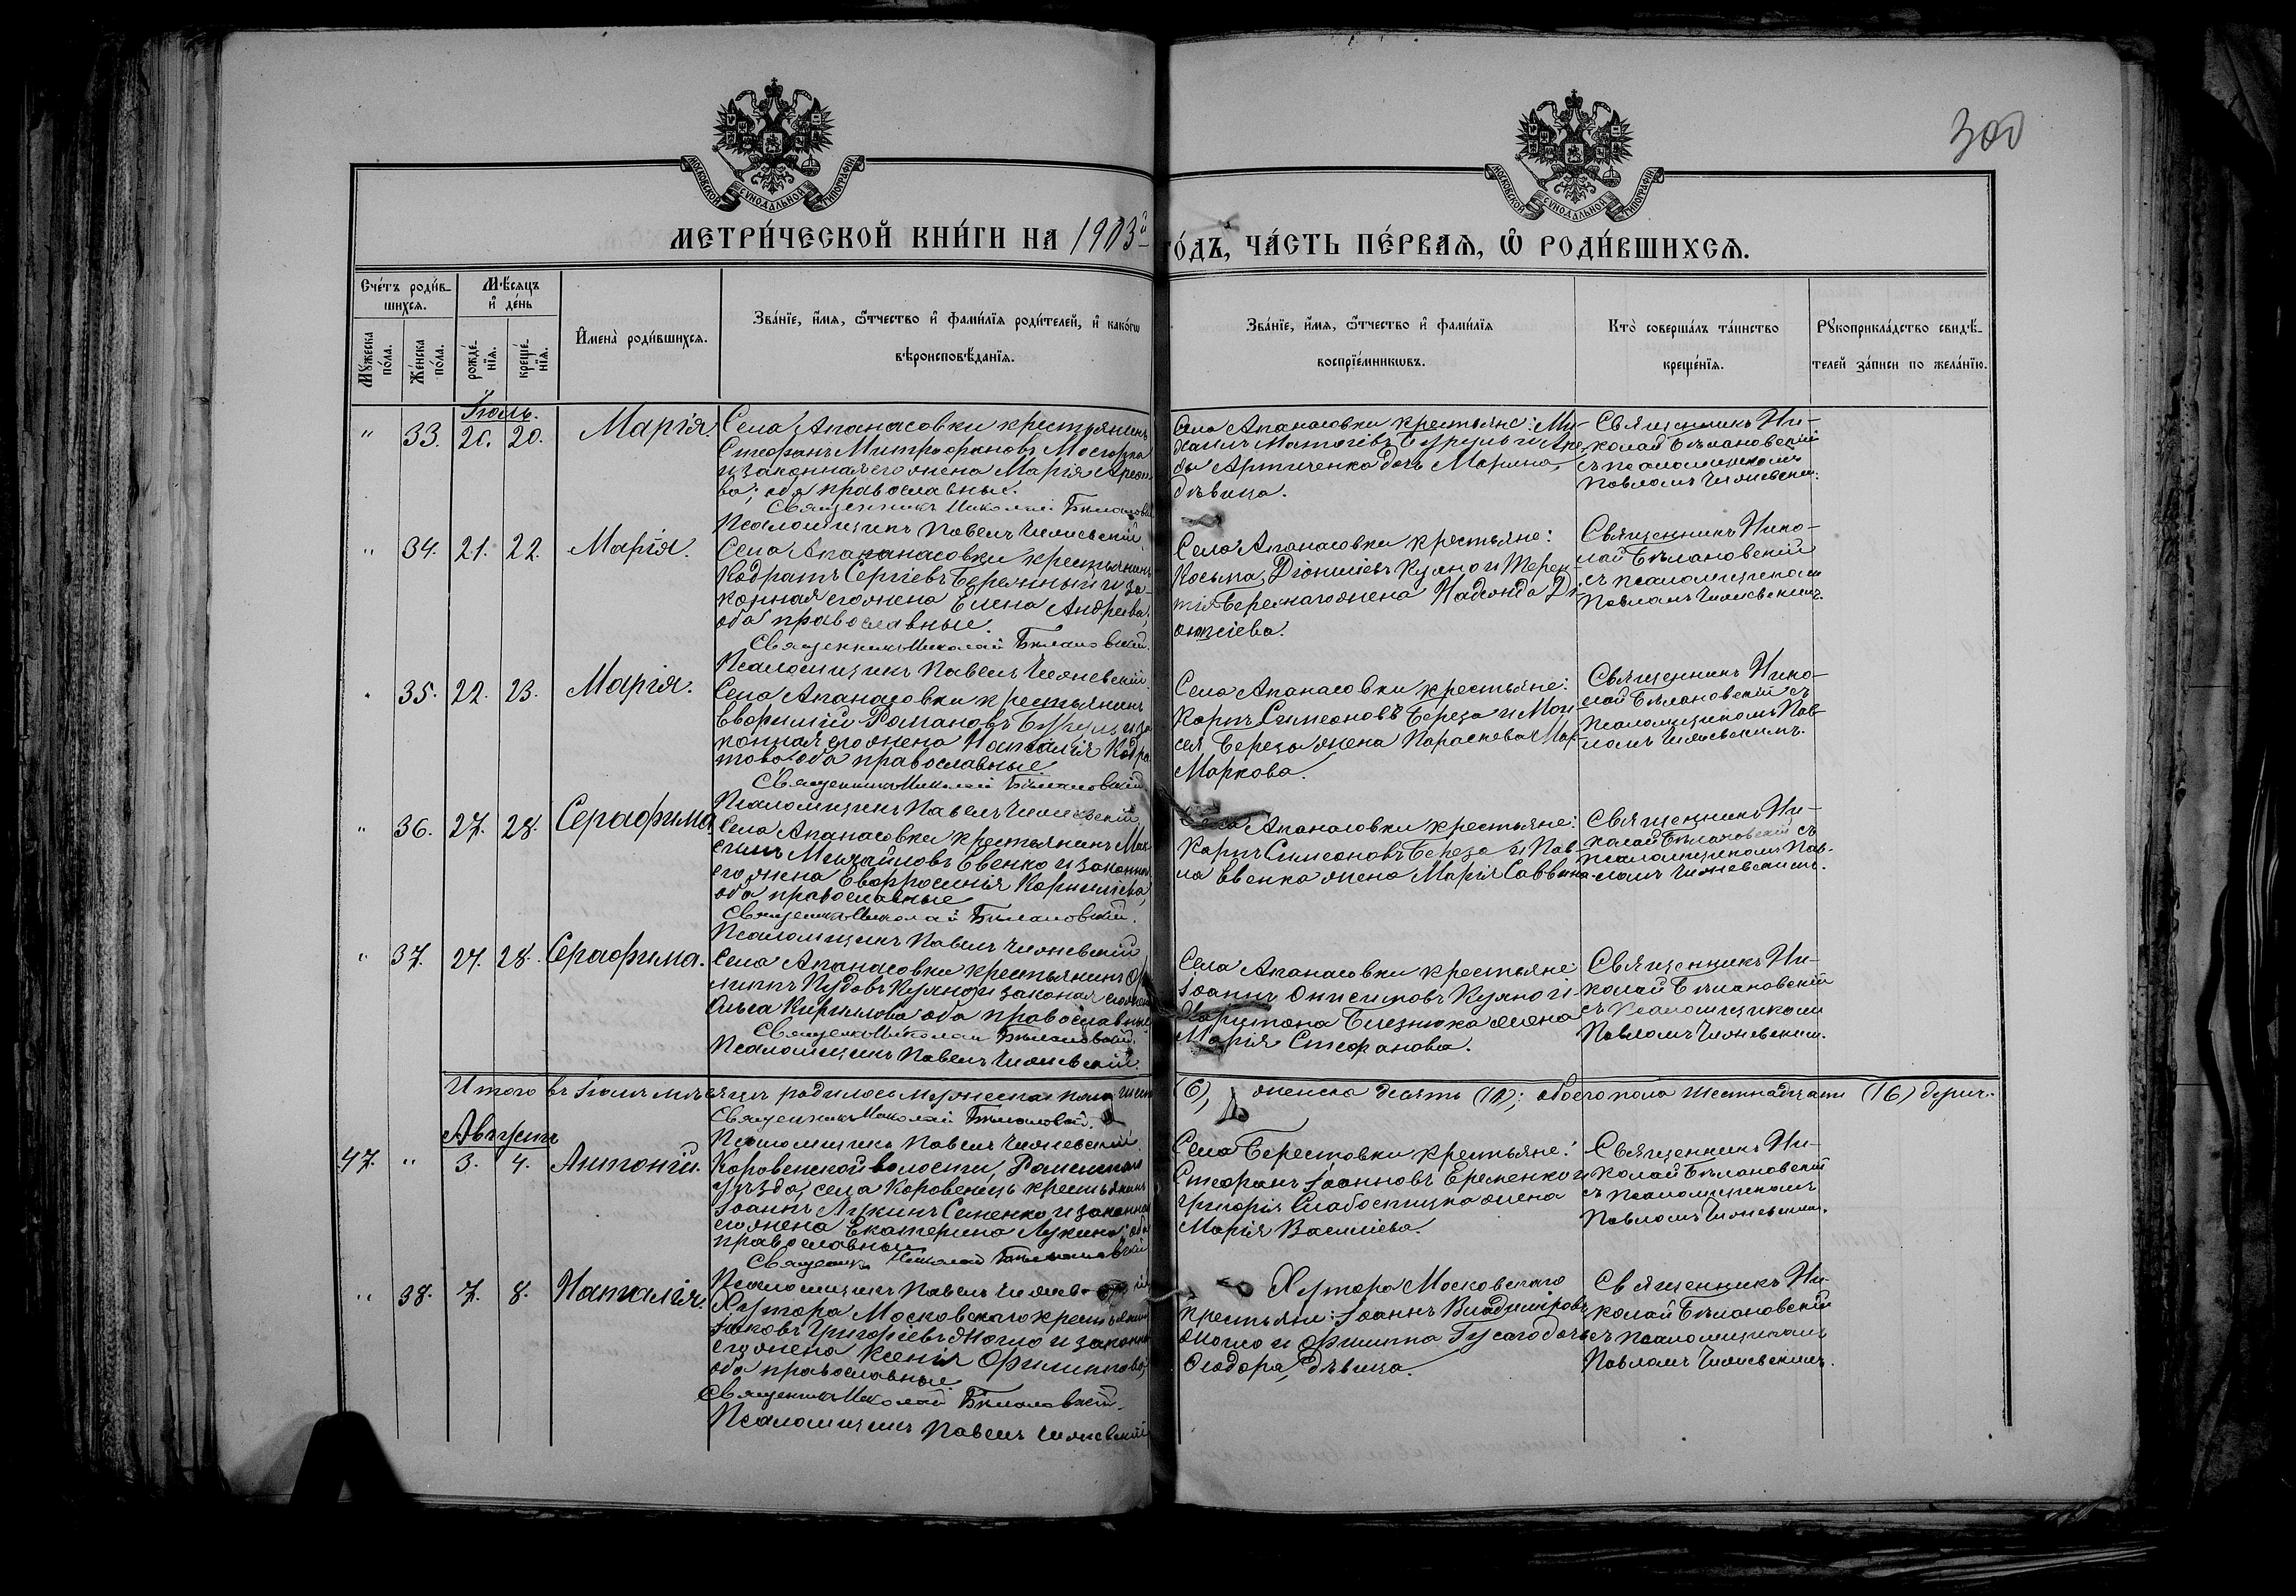 300
МОСКОВСКОЙ СѴНОДАЛЬНОЙ ТИПОГРАФІИ
МОСКОВСКОЙ СѴНОДАЛЬНОЙ ТИПОГРАФІИ
МЕТРИ́ЧЕСКОЙ КНИ́ГИ НА 1903й ГО́ДЪ, ЧА́СТЬ ПЕ́РВАѦ, Ѡ РОДИ́ВШИХСѦ.
Сче́тъ роди́в-
шихсѧ.
Мꙋжеска по́ла.
Же́нска по́ла.
Мѣ́сѧцъ и де́нь
рожде́-нїѧ.
креще́-нїѧ.
Имена̀ роди́вшихсѧ.
Зва́нїе, и́мѧ, ѻ́тчество и фами́лїѧ роди́телей, и како́гѡ
вѣроисповѣ́данїѧ.
Зва́нїе, и́мѧ, ѻ́тчество и фами́лїѧ
воспрїе́мникѡвъ.
Кто̀ соверша́лъ та́инство
креще́нїѧ.
Рꙋкоприкла́дство свидѣ́-
телей за́писи по жела́нїю.
Іюль.
" 33. 20. 20. Марія.
Села Апанасовки крестьянинъ
Стефанъ Митрофановъ
и законная его жена Марія
ва; оба православные.
Священникъ Николай Бѣлановскій
Псаломщикъ Павелъ
Села Апанасовки крестьяне: Ми-
хаилъ
Артюченка дочь Марина,
дѣвица.
Священникъ Ни-
колай Бѣлановскій
съ псаломщикомъ
Павломъ
" 34. 21. 22. Марія.
Села Апананасовки крестьянинъ
Кодратъ Сергіевъ Бережный и за-
конная его жена Елена Андреева,
оба православные.
Священникъ Николай Бѣлановскій.
Псаломщикъ Павелъ
Села Апанасовки крестьяне:
Косьма Діонисіевъ Кужно и Терен-
тія Бережнаго жена Надежда Ді-
онисіева.
Священникъ Нико-
лай Бѣлановскій
съ псаломщикомъ
Павломъ
" 35. 22. 23. Марія.
Села Апанасовки крестьянинъ
Евфимій Романовъ и за
конная его жена Наталія Кодра
това оба православные
Священникъ Николай Бѣлановскій
Псаломщикъ Павелъ
Села Апанасовки крестьяне:
Карпъ Симеоновъ Береза и Мои
сея Березы жена Параскева Мар-
Маркова.
Священникъ Нико-
лай Бѣлановскій съ
псаломщикомъ Пав-
ломъ
" 36. 27. 28. Серафима
Села Апанасовки крестьянинъ Мак
симъ Михайловъ Евенко и законная
его жена Евфросинія Корнилiева,
оба православные
Священникъ Николай Бѣлановскій.
Псаломщикъ Павелъ
Села Апанасовки крестьяне:
Карпъ Симеоновъ Береза и Пав-
ла Евенка жена Марія Саввина.
Священникъ Ни-
колай Бѣлановскій съ
псаломщикомъ Пав-
ломъ
" 37. 27. 28. Серафима.
Села Апанасовки крестьянинъ
Кужно и законая его жена
Ольга Кириллова оба православные
Священникъ Николай Бѣлановскій.
Псаломщикъ Павелъ
Села Апанасовки крестьяне
Іоаннъ Онисимовъ Кужно и
Харитона жена
Марія Стефанова.
Священникъ Ни-
колай Бѣлановскій
съ псаломщикомъ
Павломъ
Итого въ Іюлѣ мѣсяцѣ родилось мужеска пола шесть (6), женска десять (10); обоего пола шестнадцать (16) душъ.
Священникъ Николай Бѣлановскій.
Псаломщикъ Павелъ
Августъ
47. " 3. 4. Антоній.
Коровенской волости, Роменскаго
уѣзда, села Коровенецъ крестьянинъ
Іоаннъ Лукинъ Семенко и законная
его жена Екатерина Лукина, оба
православные
Священникъ Николай Бѣлановскій
Псаломщикъ Павелъ
Села Берестовки крестьяне:
Стефанъ Іоанновъ Еременко и
Григорія жена
Марія Василіева.
Священникъ Ни-
колай Бѣлановскій
съ псаломщикомъ
Павломъ
" 38. 7. 8. Наталія.
Хутора Московскаго крестьянинъ
Іаковъ Григоріевъ и законная
его жена Ксенія Филиппова,
оба православные.
Священникъ Николай Бѣлановскій.
Псаломщикъ Павелъ
Хутора Московскаго
крестьяне: Іоаннъ Владиміровъ
и Филиппа дочь
Ѳеодора, дѣвица.
Священникъ Ни-
колай Бѣлановскій
съ псаломщикомъ
Павломъ